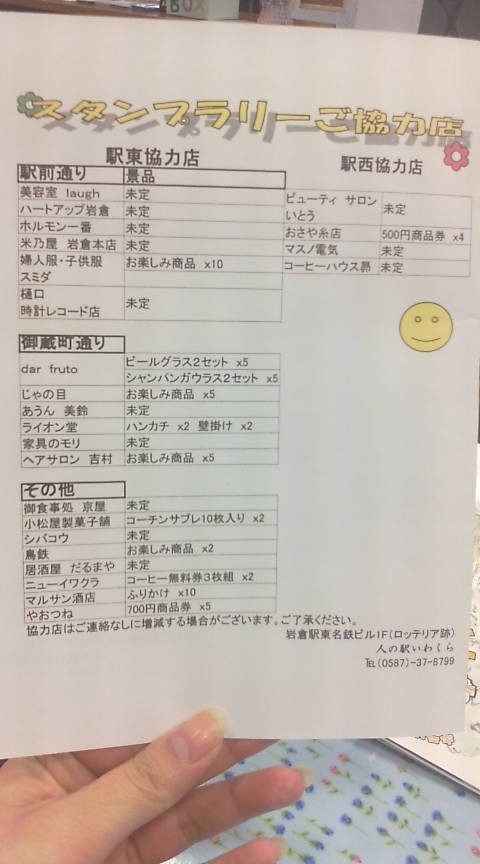 BOX
スタンプラリーご協力店
駅東協力店
駅前通り 景品
美容室 laugh 未定
ハートアップ岩倉 未定
ホルモン一番 未定
米乃屋 岩倉本店 未定
婦人服・子供服 お楽しみ商品 x10
スミダ
樋口
時計レコード店 未定
駅西協力店
ビューティ サロン
いとう 未定
おさや糸店 500円商品券 x4
マスノ電気 未定
コーヒーハウス昴 未定
御蔵町通り
dar fruto ビールグラス2セット x5
シャンパンガウラス2セット x5
じゃの目 お楽しみ商品 x5
あうん 美鈴 未定
ライオン堂 ハンカチ x2 壁掛け x2
家具のモリ 未定
ヘアサロン 吉村 お楽しみ商品 x5
その他
御食事処 京屋 未定
小松屋製菓子舗 コーチンサブレ10枚入り x2
シバコウ 未定
鳥鉄 お楽しみ商品 x2
居酒屋 だるまや 未定
ニューイワクラ コーヒー無料券3枚組 x2
マルサン酒店 ふりかけ x10
やおつね 700円商品券 x5
協力店はご連絡なしに増減する場合がございます。ご了承ください。
岩倉駅東名鉄ビル1F(ロッテリア跡)
人の駅いわくら
TEL(0587)-37-8799